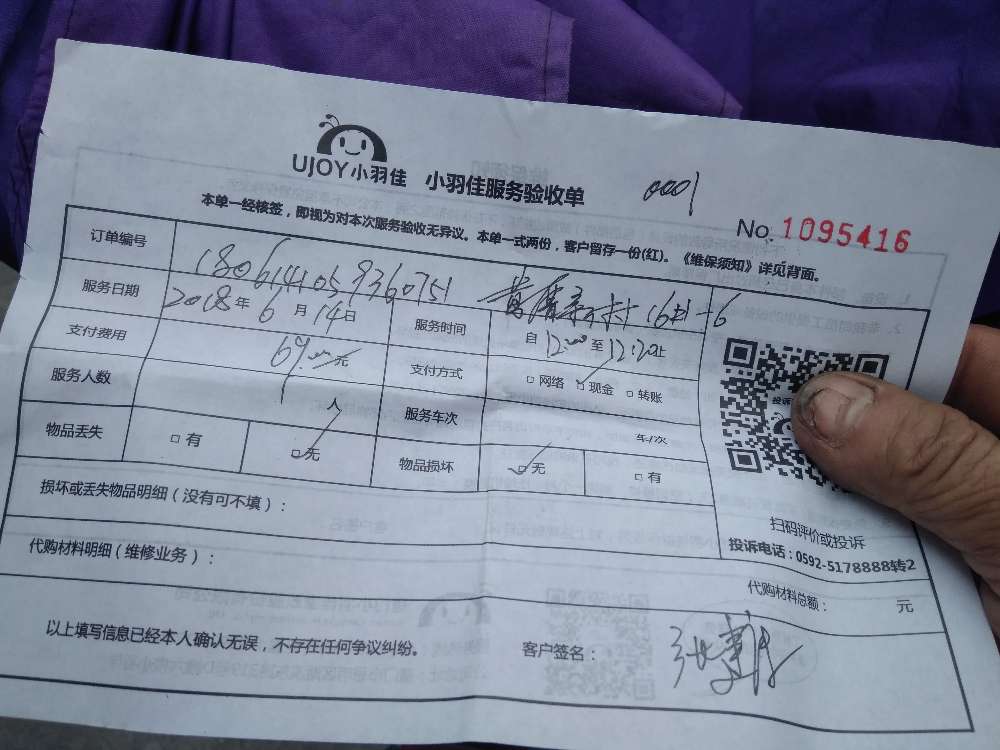 UJOY小羽佳 小羽佳服务验收单 0001
No. 1095416
本单一经核签，即视为对本次服务验收无异议。本单一式两份，客户留存一份(红)。《维保须知》详见背面。
订单编号 1806141059360751
服务日期 2018年6月14日 服务时间 自12:00至12:20止
支付费用 元 支付方式 □网络 □现金 □转账
服务人数 1人 服务车次 车/次
物品丢失 □有 □无 物品损坏 □无 □有
损坏或丢失物品明细（没有可不填）：
扫码评价或投诉
投诉电话：0592-5178888转2
代购材料明细（维修业务）：
代购材料总额： 元
以上填写信息已经本人确认无误，不存在任何争议纠纷。 客户签名：